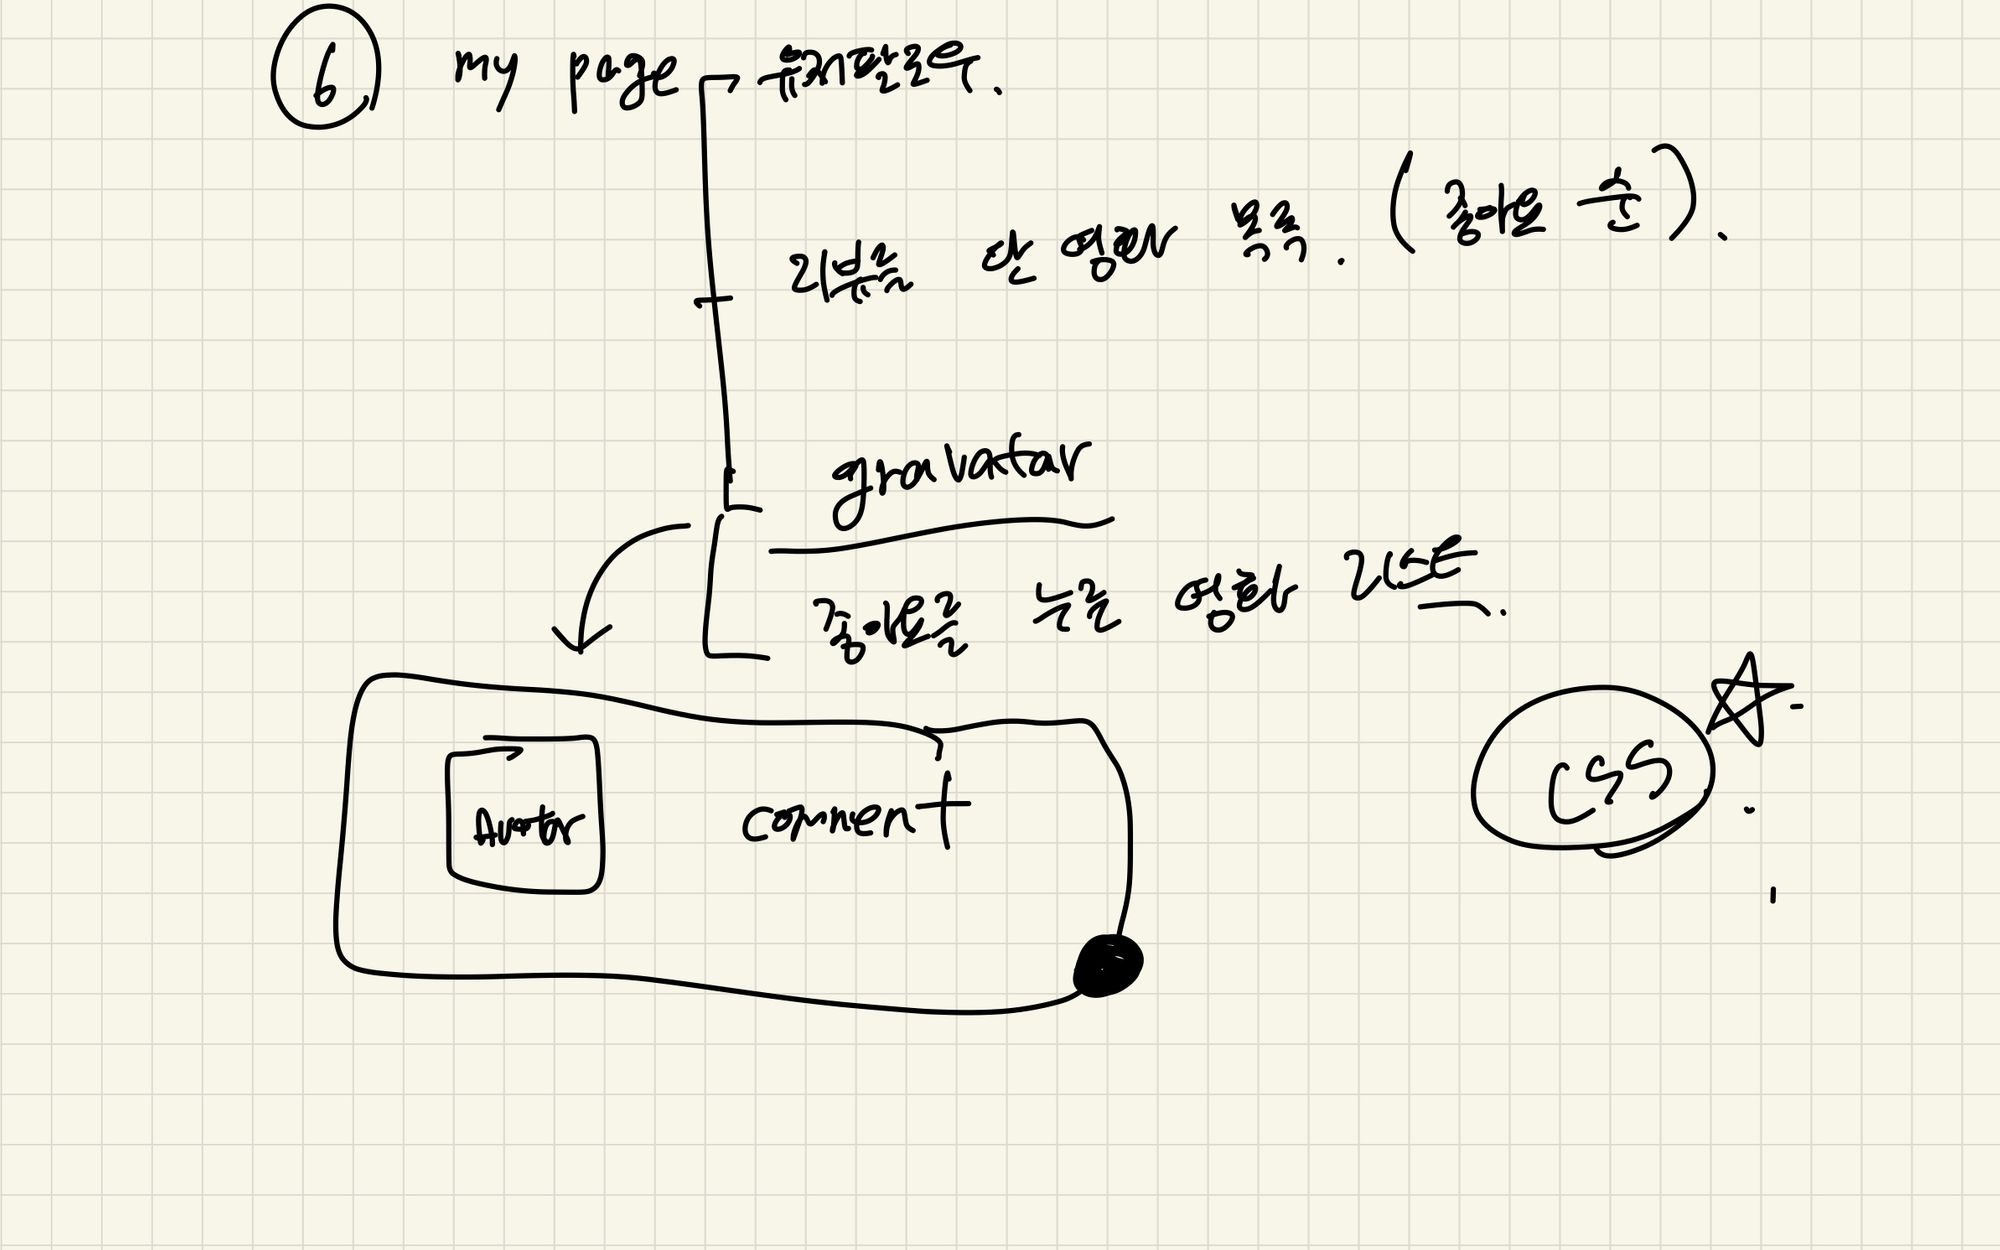 6 my page 유저팔로우.
리뷰를 단 영화 목록. (좋아요 순).
gravatar
좋아요를 누를 영화 리스트.
CSS
Avatar comment